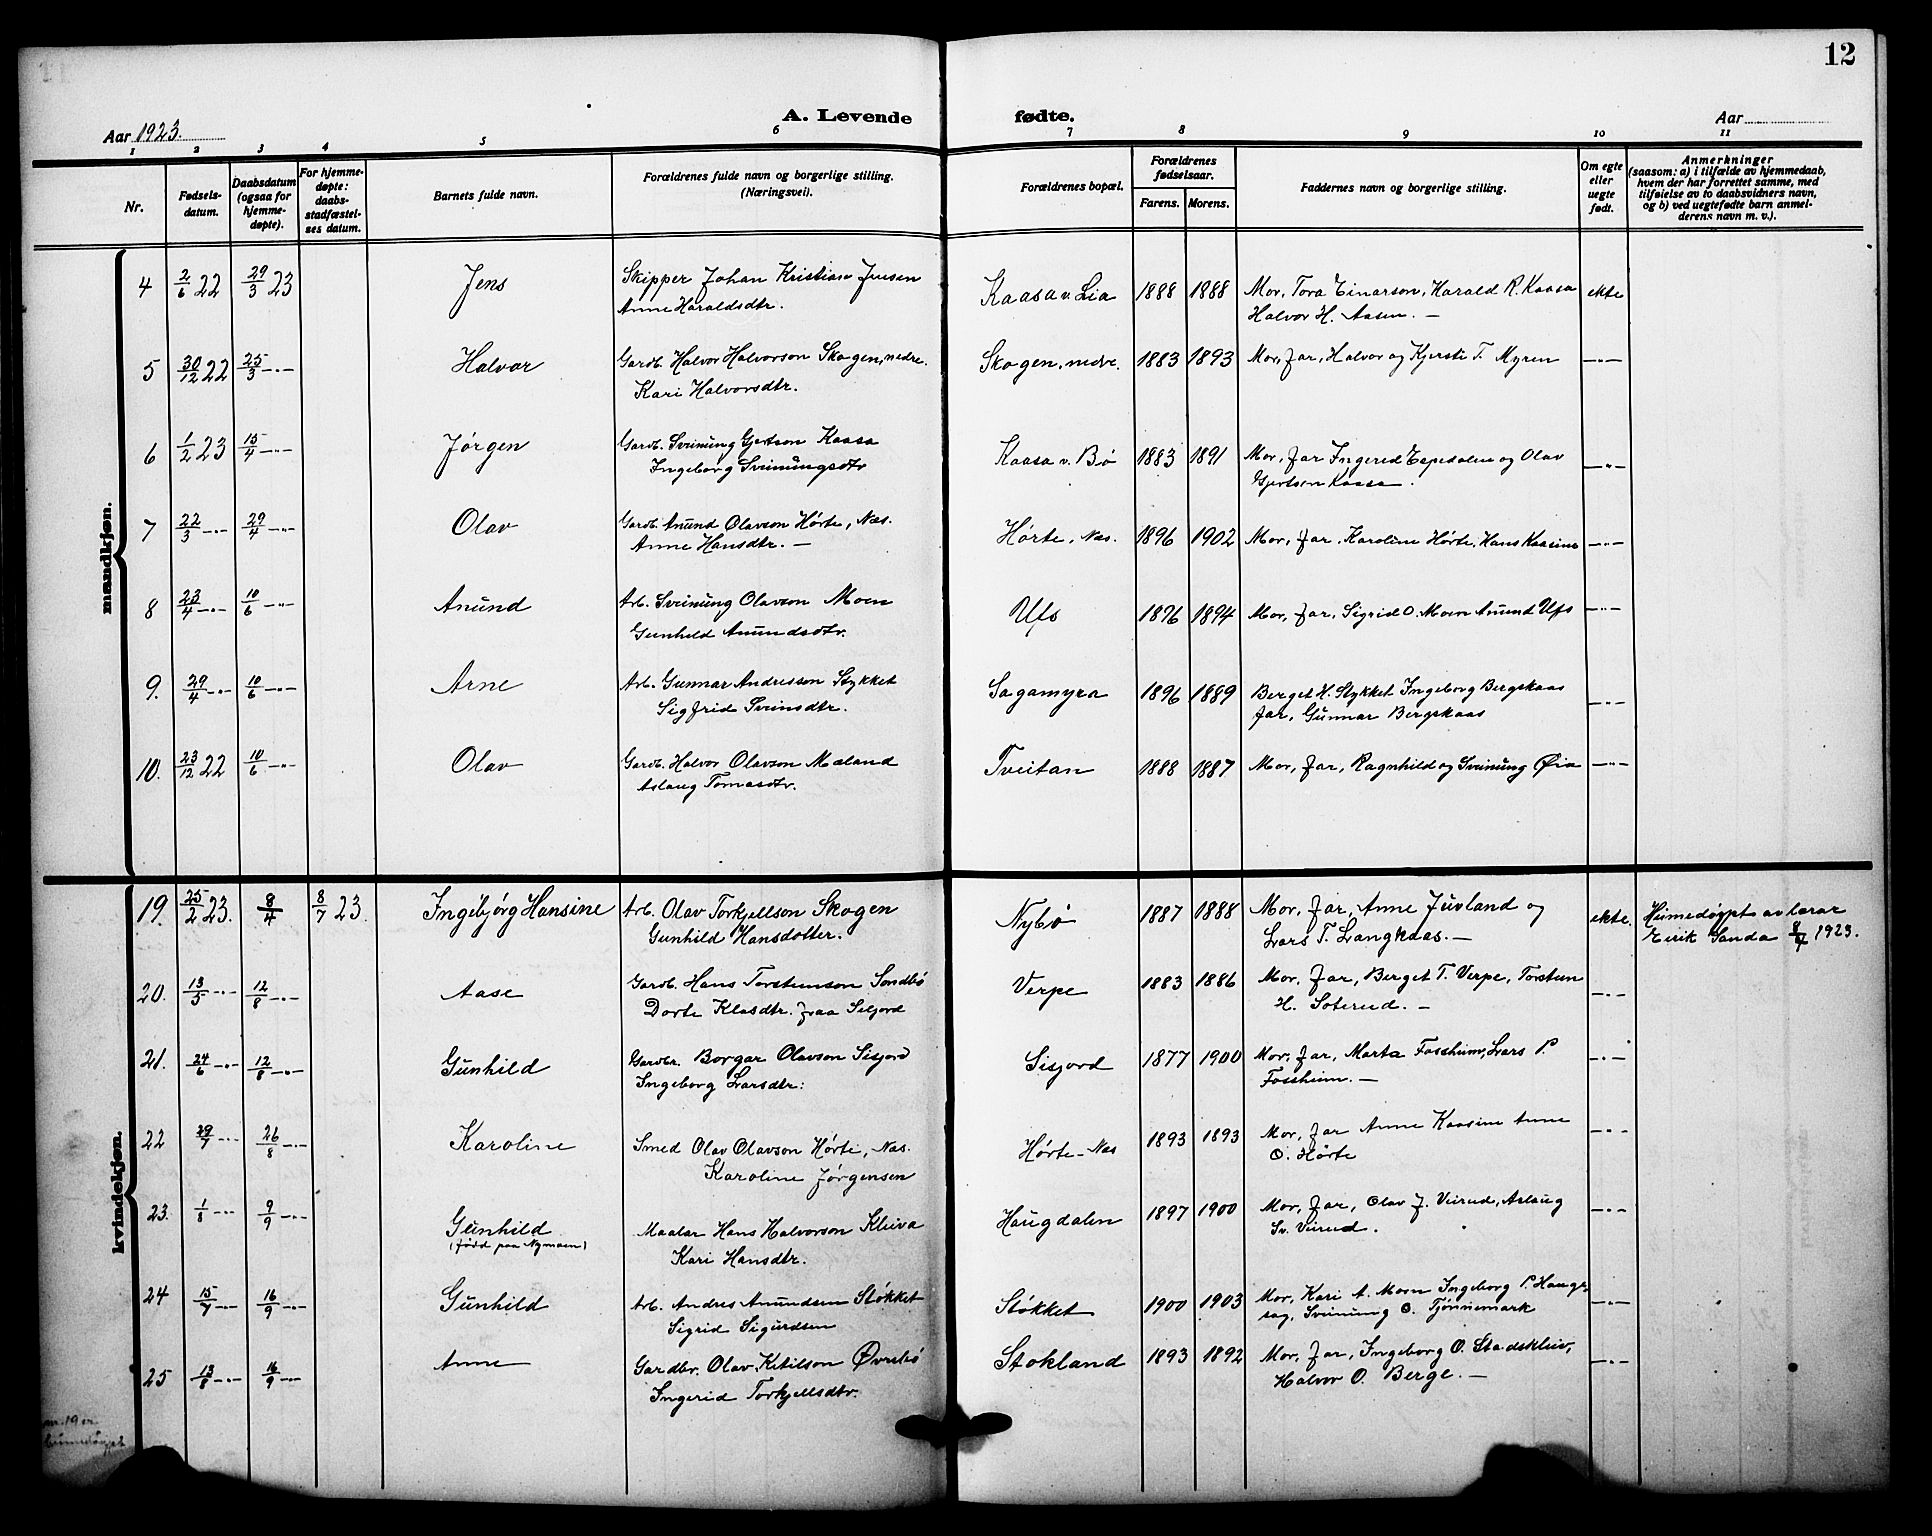 12
A. Levende fødte.
Aar 1923.
Aar
1 2 3 4 5 6 7 8 9 10 11
Nr.
Fødsels-
datum.
Daabsdatum
(ogsaa for
hjemme-
døpte).
For hjemme-
døpte:
daabs-
stadfæstel-
ses datum.
Barnets fulde navn.
Forældrenes fulde navn og borgerlige stilling.
(Næringsvei).
Forældrenes bopæl.
Forældrenes
fødselsaar.
Farens. Morens.
Faddernes navn og borgerlige stilling.
Om egte
eller
uegte
født.
Anmerkninger
(saasom: a) i tilfælde av hjemmedaab,
hvem der har forrettet samme, med
tilføielse av to daabsvidners navn,
og b) ved uegtefødte barn anmel-
derens navn m. v.).
mandkjøn.
4 2/6 22 29/3 23 Jens Skipper Johan Kristian Jensen Kaasa v. Lia 1888 1888 Mor, Tora Einarson, Harald R. Kaasa ekte
Anne Haraldsdtr. Halvor H. Aasen. —
5 30/12 22 25/3 —"— Halvor Gardb. Halvor Halvorson Skogen, nedre. Skogen, nedre. 1883 1893 Mor, far, Halvor og Kjersti T. Myren —"—
Kari Halvorsdtr.
6 1/2 23 15/4 —"— Jørgen Gardb. Sveinung Gjertson Kaasa Kaasa v. Bø 1883 1891 Mor, far Ingerid Espedalen og Olav —"—
Ingeborg Sveinungsdtr Gjertsen Kaasa.
7 22/3 —"— 29/4 —"— Olav Gardb. Anund Olavson Hørte, Næs. Hørte, Næs. 1896 1902 Mor, far, Karoline Hørte, Hans Kaasine —"—
Anne Hansdtr. —
8 23/4 —"— 10/6 —"— Anund Arb. Sveinung Olavson Moen Ufs 1896 1894 Mor, far, Sigrid O. Moen Anund Ufs —"—
Gunhild Anundsdtr.
9. 29/4 —"— 10/6 —"— Arne Arb. Gunnar Andresson Stykket Sagamyra 1896 1889 Berget H. Stykket Ingeborg Bergskaas —"—
Sigfrid Sveinsdtr. far, Gunnar Bergskaas
10. 23/12 22 10/6 —"— Olav Gardb. Halvor Olavson Mæland Tveitan 1888 1887 Mor, far, Ragnhild og Sveinung Øia —"—
Aslaug Tomasdtr.
kvindekjøn.
19. 25/2 23. 8/4 8/7 23 Ingebjørg Hansine Arb. Olav Torkjellson Skogen Nybø 1887 1888 Mor, far, Anne Juvland og ekte. Heimedøypt av lærar
Gunhild Hansdotter. Lars T. Langkaas. — Eirik Sanda 8/4 1923.
20. 13/5 —"— 12/8 —"— Aase Gardb. Hans Torsteinson Sondbø Verpe 1883 1886 Mor, far, Berget T. Verpe, Torstein —"—
Dorte Klasdtr. fraa Seljord H. Soterud. —
21. 24/6 —"— 12/8 —"— Gunhild Gardbr. Borgar Olavson Sisjord Sisjord 1877 1900 Mor, far, Marta Fossheim, Lars P. —"—
Ingeborg Larsdtr: Fossheim. —
22 29/7 —"— 26/8 —"— Karoline Smed Olav Olavson Hørte, Næs. Hørte - Næs 1893 1893 Mor, far Anne Kaasine Anne —"—
Karoline Jørgensen O. Hørte
23. 1/8 —"— 9/9 —"— Gunhild Maalar Hans Halvorson Kleiva Haugdalen 1897 1900 Mor, far, Olav J. Veirud, Aslaug —"—
(fødd paa Nymoen) Kari Hansdtr. Sv. Veirud.
24 15/7 —"— 16/9 —"— Gunhild Arb. Andres Anundsen Støkket Støkket 1900 1903 Mor, Kari A. Moen Ingeborg P. Hauge- —"—
Sigrid Sigurdsen Sveinung O. Tjønnemark
25 13/8 —"— 16/9 —"— Anne Gardbr. Olav Ketilson Øvrebø Stokland 1893 1892 Mor, far, Ingeborg O. Stadskleiv, —"—
Ingerid Torkjellsdtr. Halvor O. Berge. —
nr. 19 er
heimedøypt